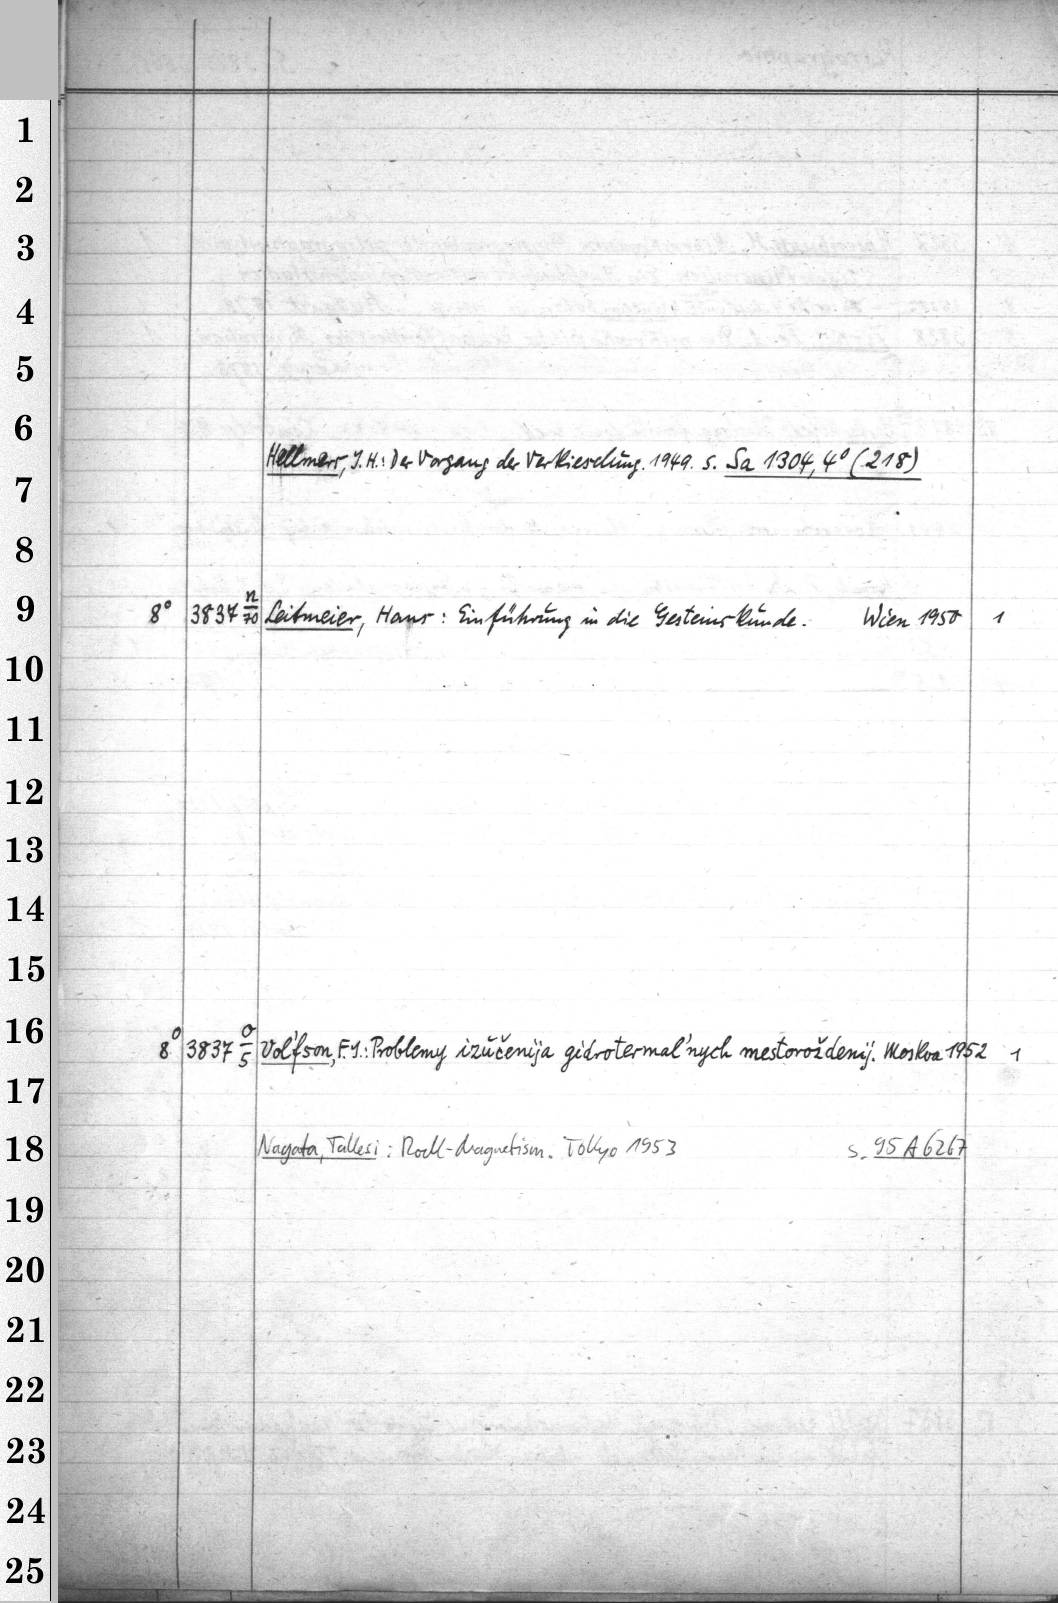 1
2
3
4
5
6
Hellmers, J.H.: Der Vorgang der Verkieselung. 1949. s. Sa 1304, 4° (218)
7
8
9
8° 3837 n/70 Leitmeier, Hans: Einführung in die Gesteinskunde. Wien 1950 1
10
11
12
13
14
15
16
8° 3837 o/5 Vol'fson, F.I.: Problemy izučenija gidrotermal'nych mestoroždenij. Moskva 1952 1
17
18
Nagata, Takesi: Rock-Magnetism. Tokyo 1953 s. 95 A 6267
19
20
21
22
23
24
25